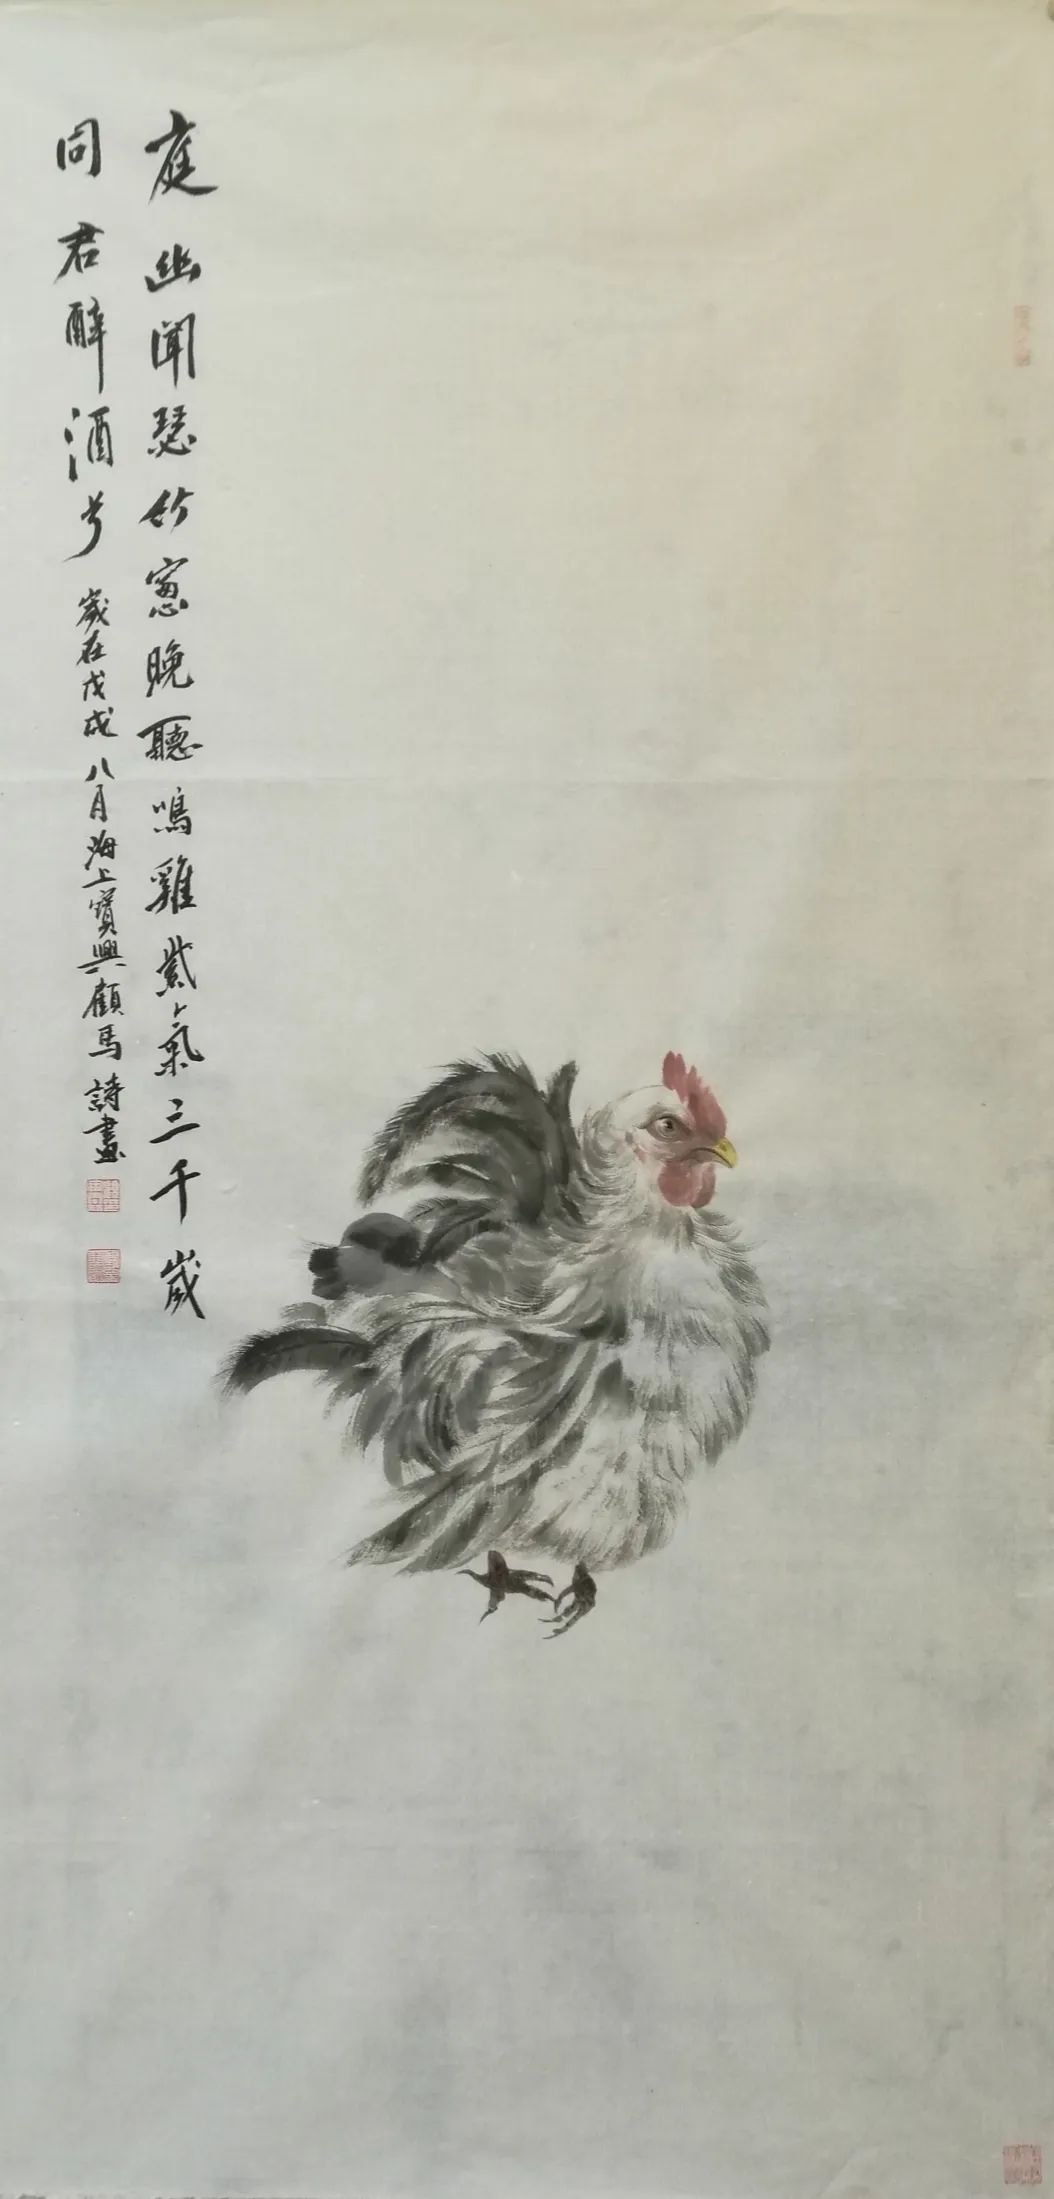 庭幽聞瑟竹窻晚聽鳴雞紫氣三千歲
同君醉酒兮
歲在戊戌八月海上寶興顧馬詩畫